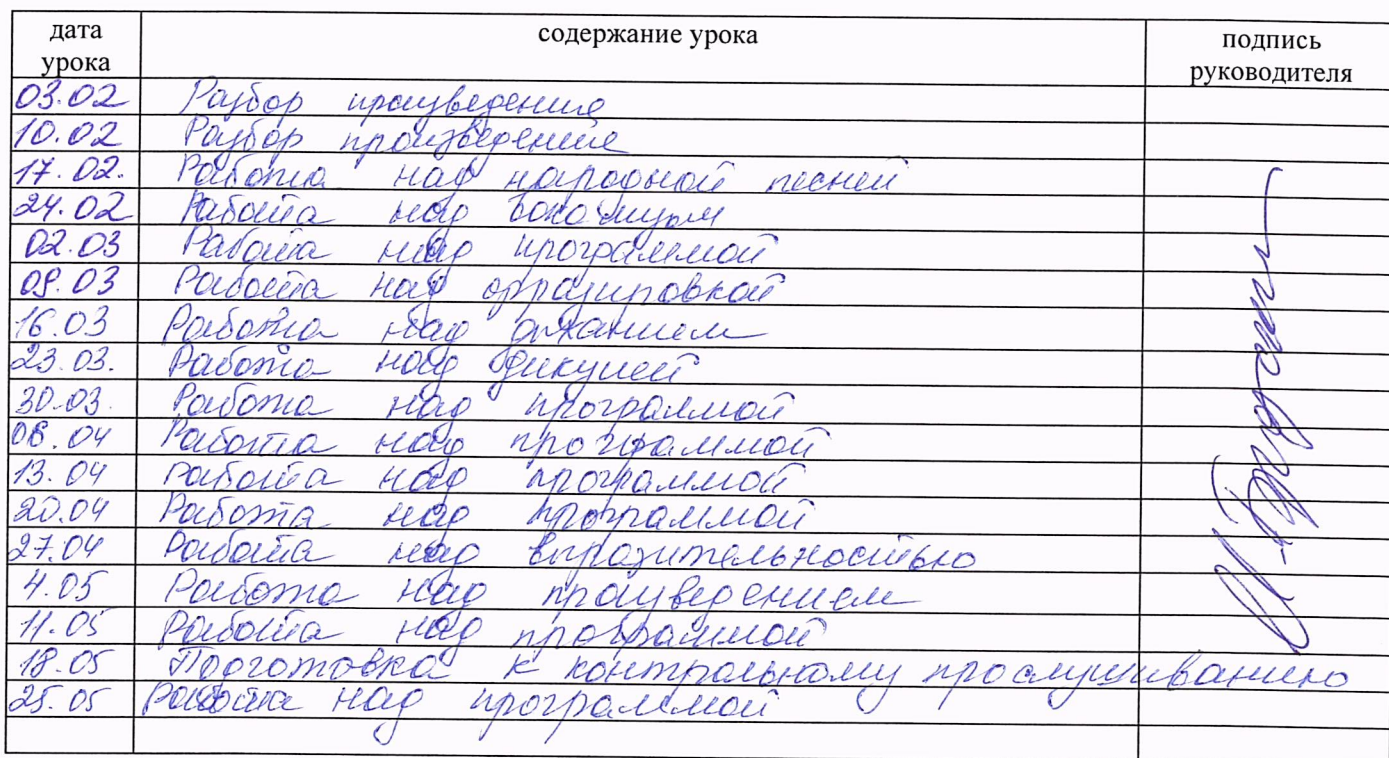 дата урока содержание урока подпись руководителя
03.02 Разбор произведения
10.02 Разбор произведения
17.02. Работа над народной песней
24.02 Работа над вокализом
02.03 Работа над программой
09.03 Работа над фразировкой
16.03 Работа над дыханием
23.03. Работа над дикцией
30.03. Работа над программой
06.04 Работа над программой
13.04 Работа над программой
20.04 Работа над программой
27.04 Работа над выразительностью
4.05 Работа над произведением
11.05 Работа над программой
18.05 Подготовка к контрольному прослушиванию
25.05 Работа над программой